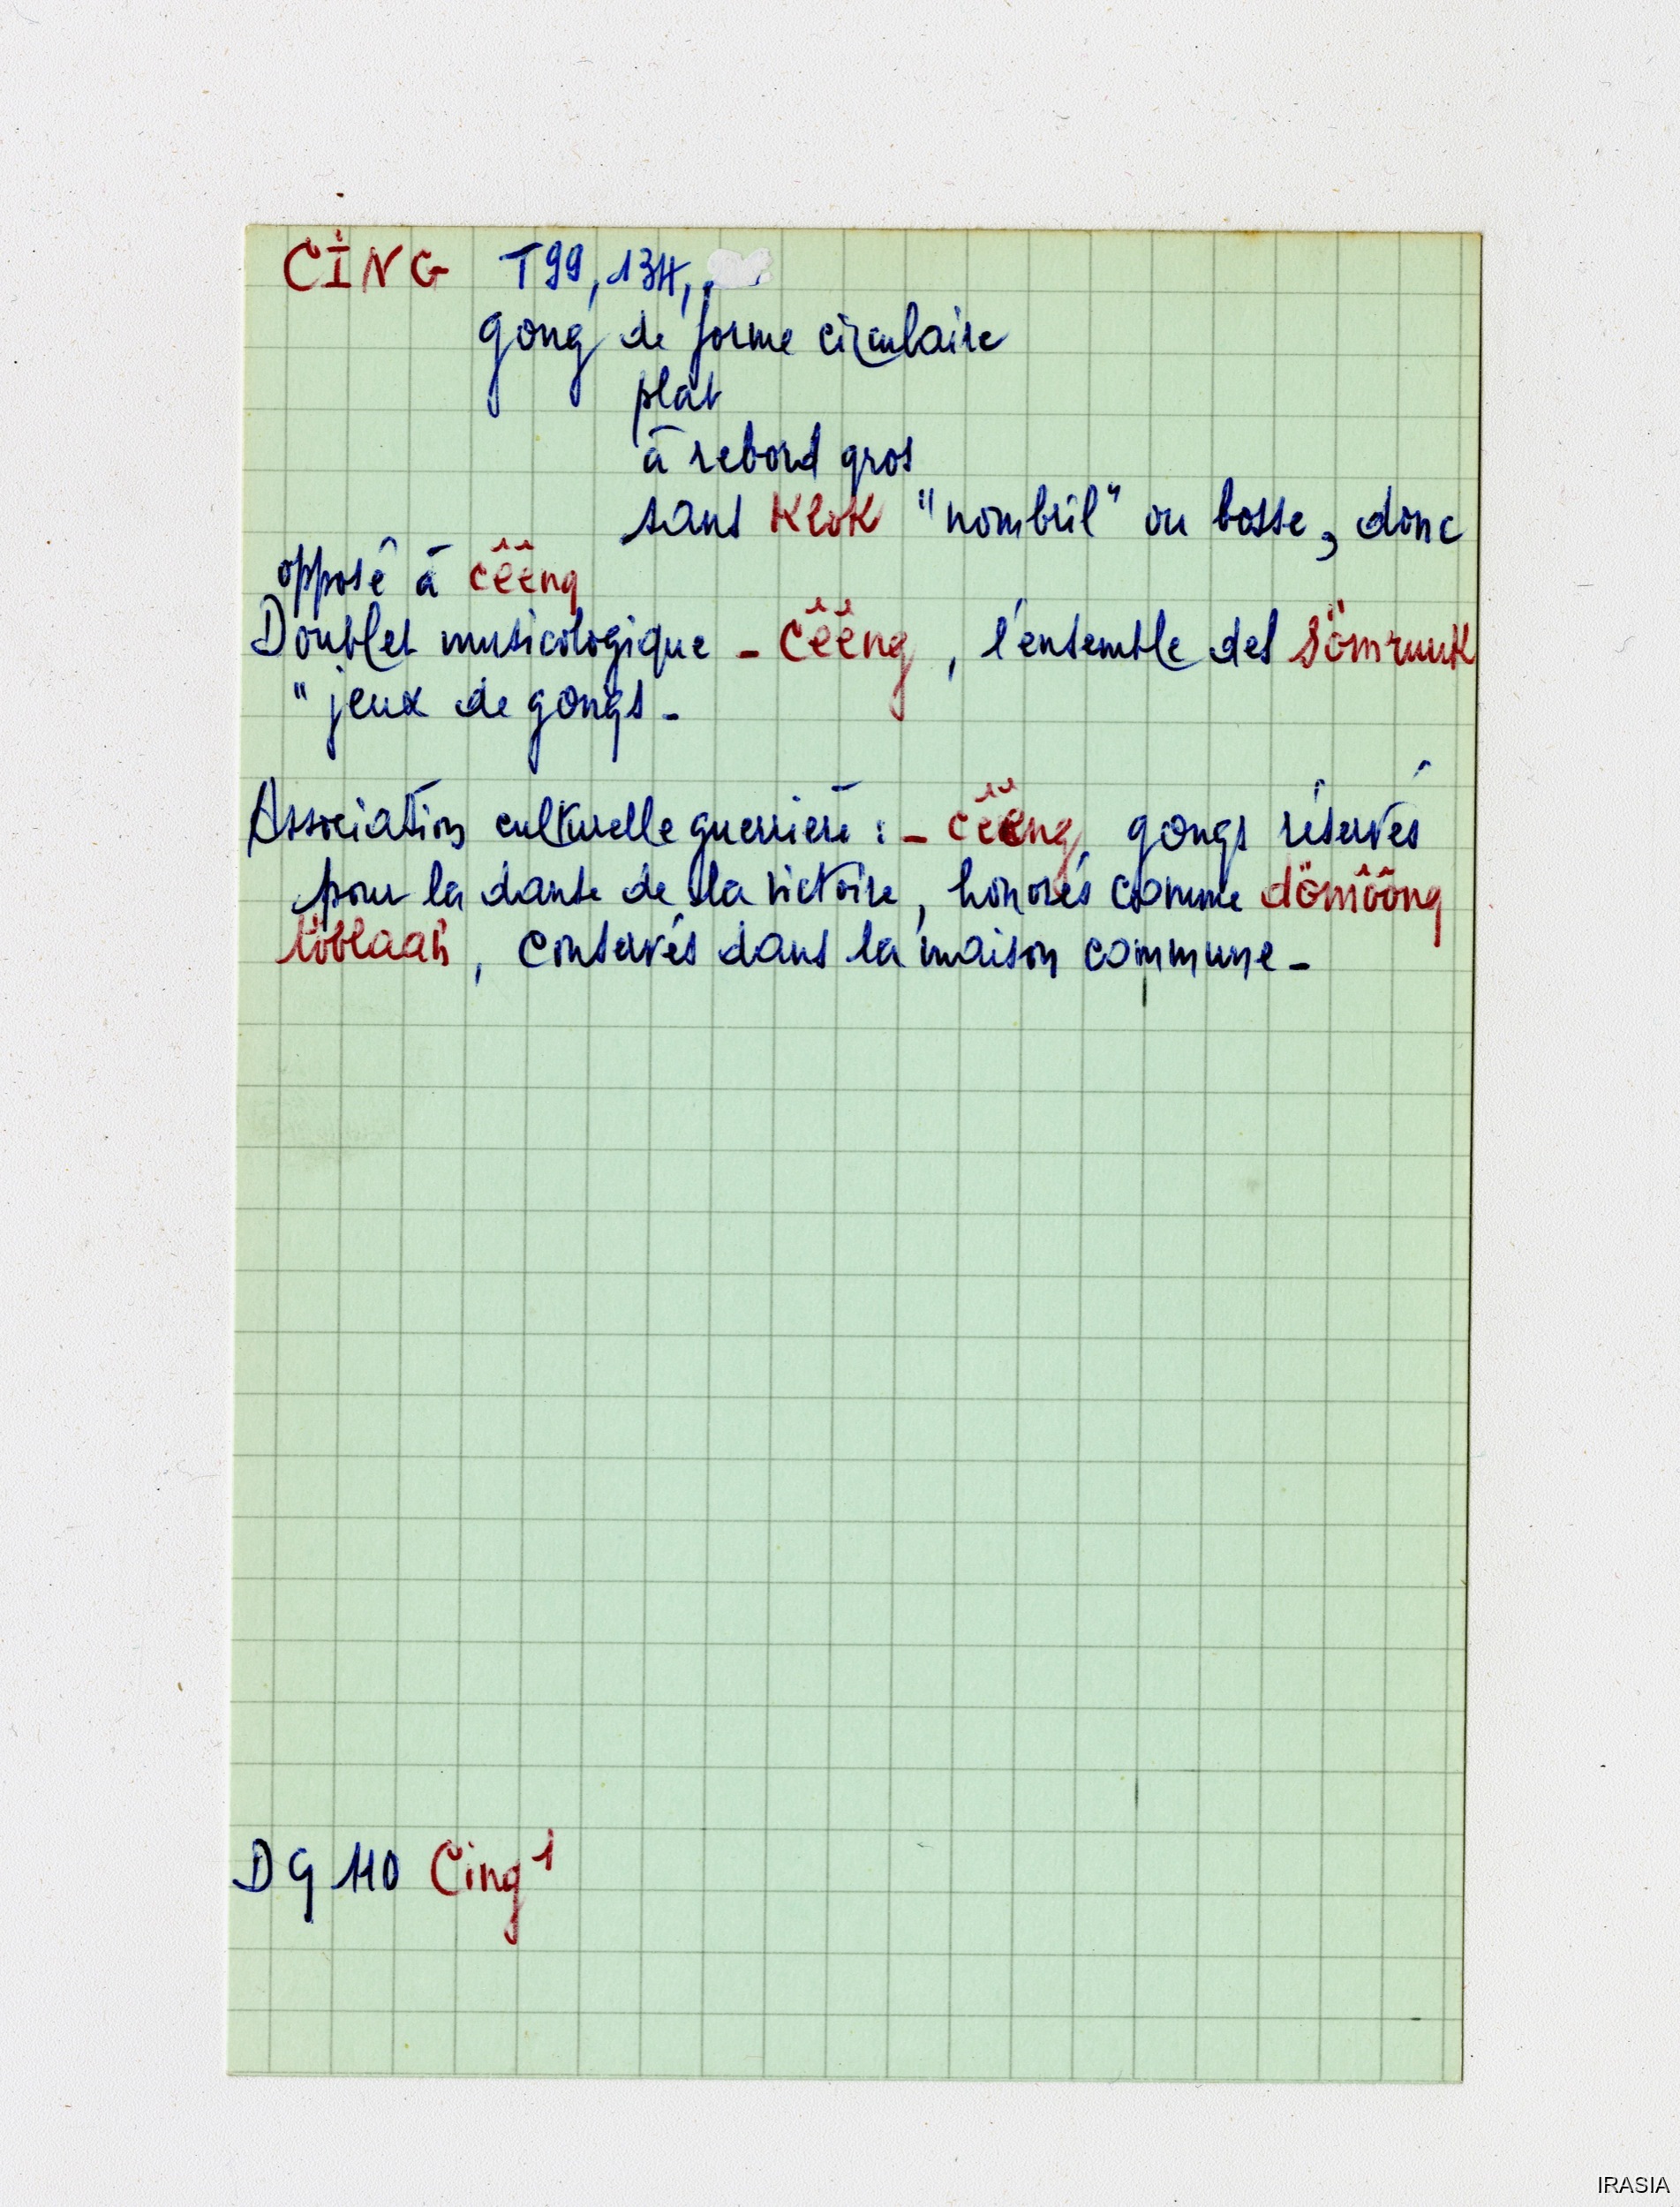 CING T99, 134,
gong de forme circulaire
plat
à rebord gros
sans KloK "nombril" ou bosse, donc
opposé à cêêng
Doublet musicologique - cêêng, l'ensemble des sömruuK
"jeux de gongs -
Association culturelle guerrière : - cêêng, gongs réservés
pour la danse de la victoire, honorés comme dömôông
löblaah, conservés dans la maison commune -
DG 110 Cing 1
IRASIA